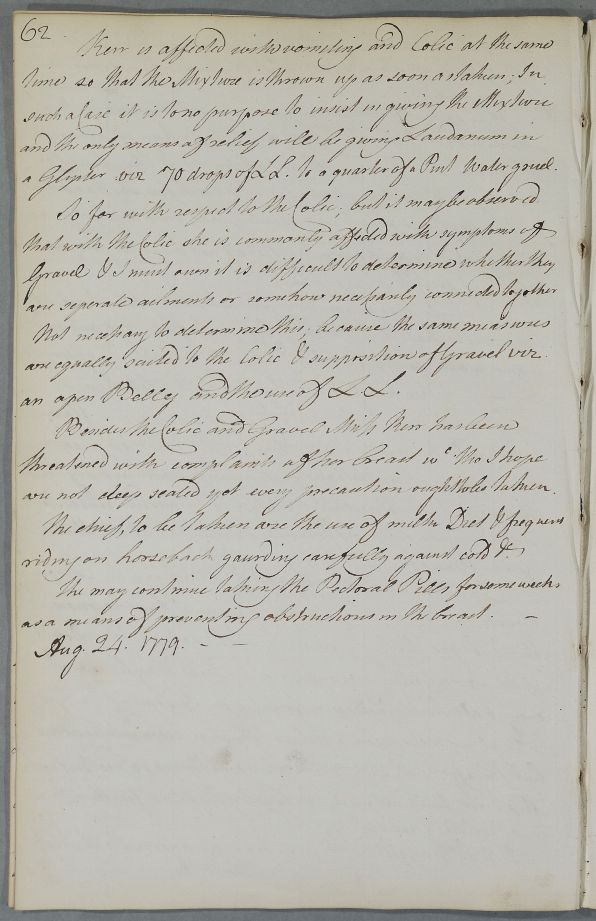 62
Kerr is affected with vomiting and Colic at the same
time so that the Mixture is thrown up as soon as taken; In
such a Case it is to no purpose to insist in giving the Mixture
and the only means of relief will be giving Laudanum in
a Glyster viz 70 drops of L L. to a quarter of a Pint Water gruel.
So far with respect to the Colic, but it may be observed
that with the Colic she is commonly affected with symptoms of
Gravel & I must own it is difficult to determine whether they
are seperate ailments or somehow necessarily connected together
Not necessary to determine this, because the same measures
are equally suited to the Colic & supposition of Gravel viz.
an open Belly and the use of L. L.
Besides the Colic and Gravel Miss Kerr has been
threatened with complaints of her breast wc. tho I hope
are not deep seated yet every precaution ought to be taken.
The chief, to be taken are the use of milk Diet & frequent
riding on horseback gaurding carefully against cold &c
She may continue taking the Pectoral Pills for some weeks
as a means of preventing obstructions in the breast. —
Aug. 24. 1779. - —